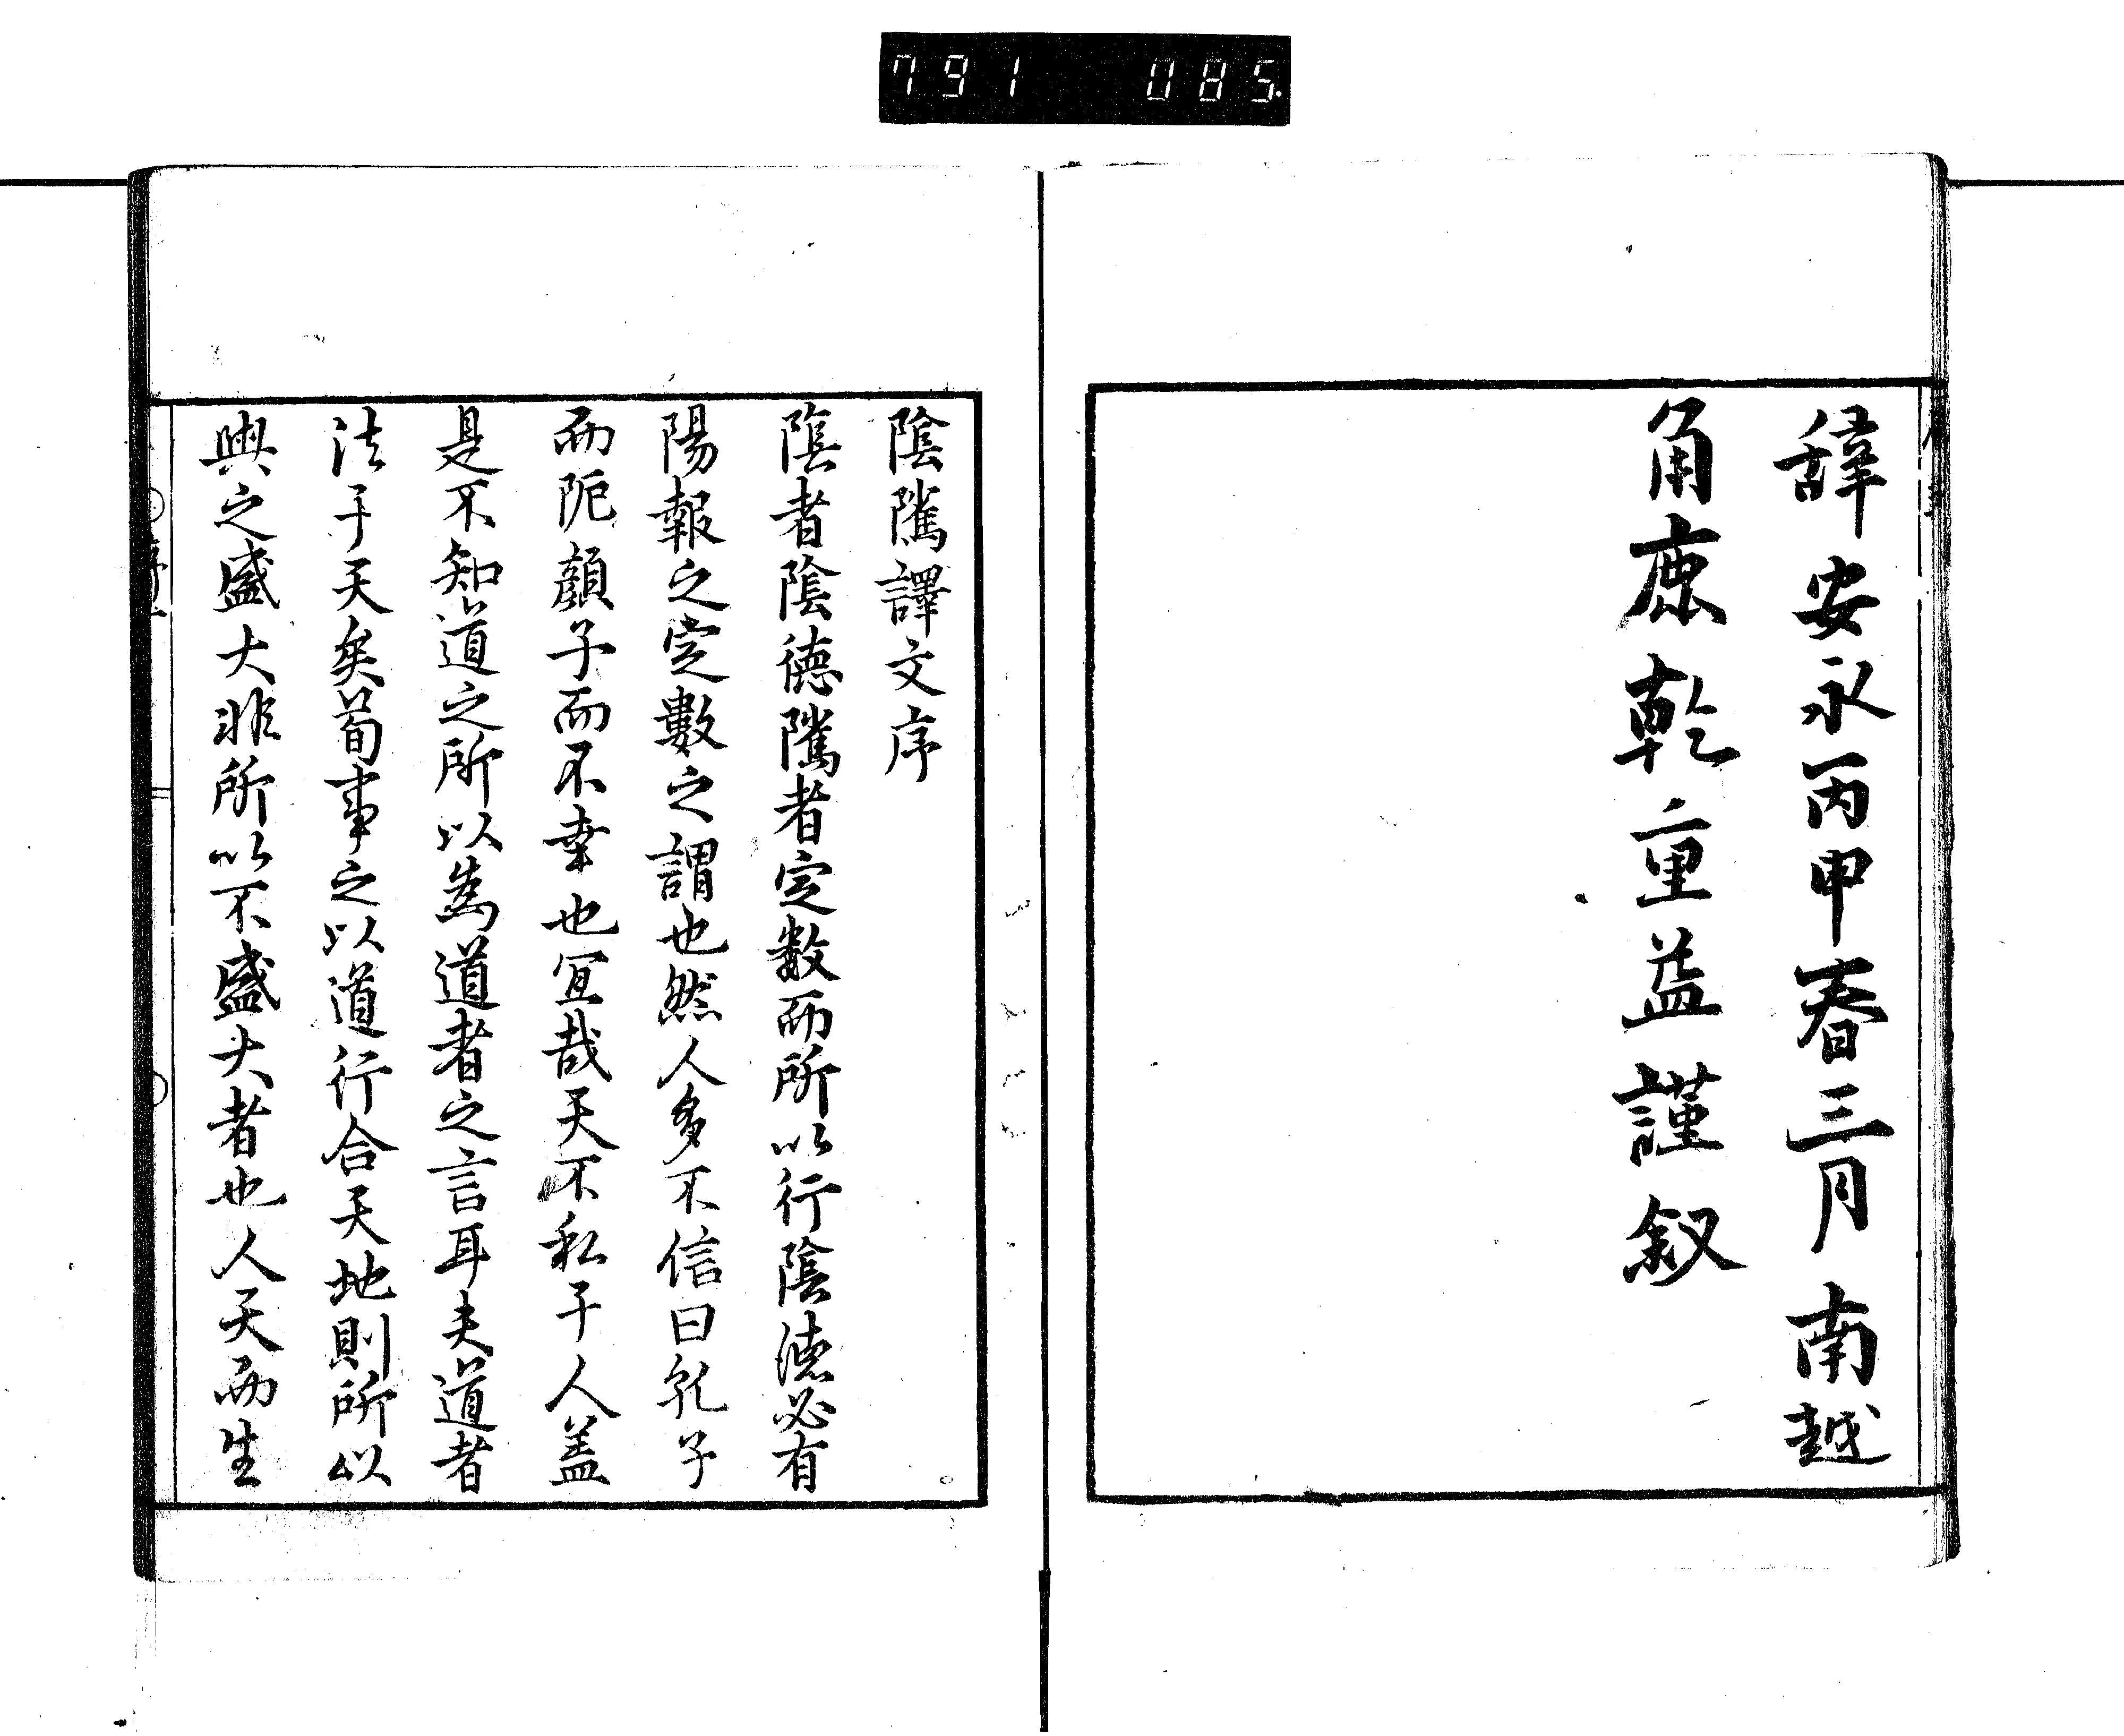 791 085.
辞安永丙申春三月南越
角鹿乾重益謹叙
陰隲譯文序
陰者陰徳隲者定数而所以行陰徳必有
陽報之定數之謂也然人多不信曰孔子
而阨顔子而不幸也宜哉天不私于人盖
是不知道之所以為道者之言耳夫道者
法于天矣苟事之以道行合天地則所以
與之盛大非所以不盛大者也人天而生